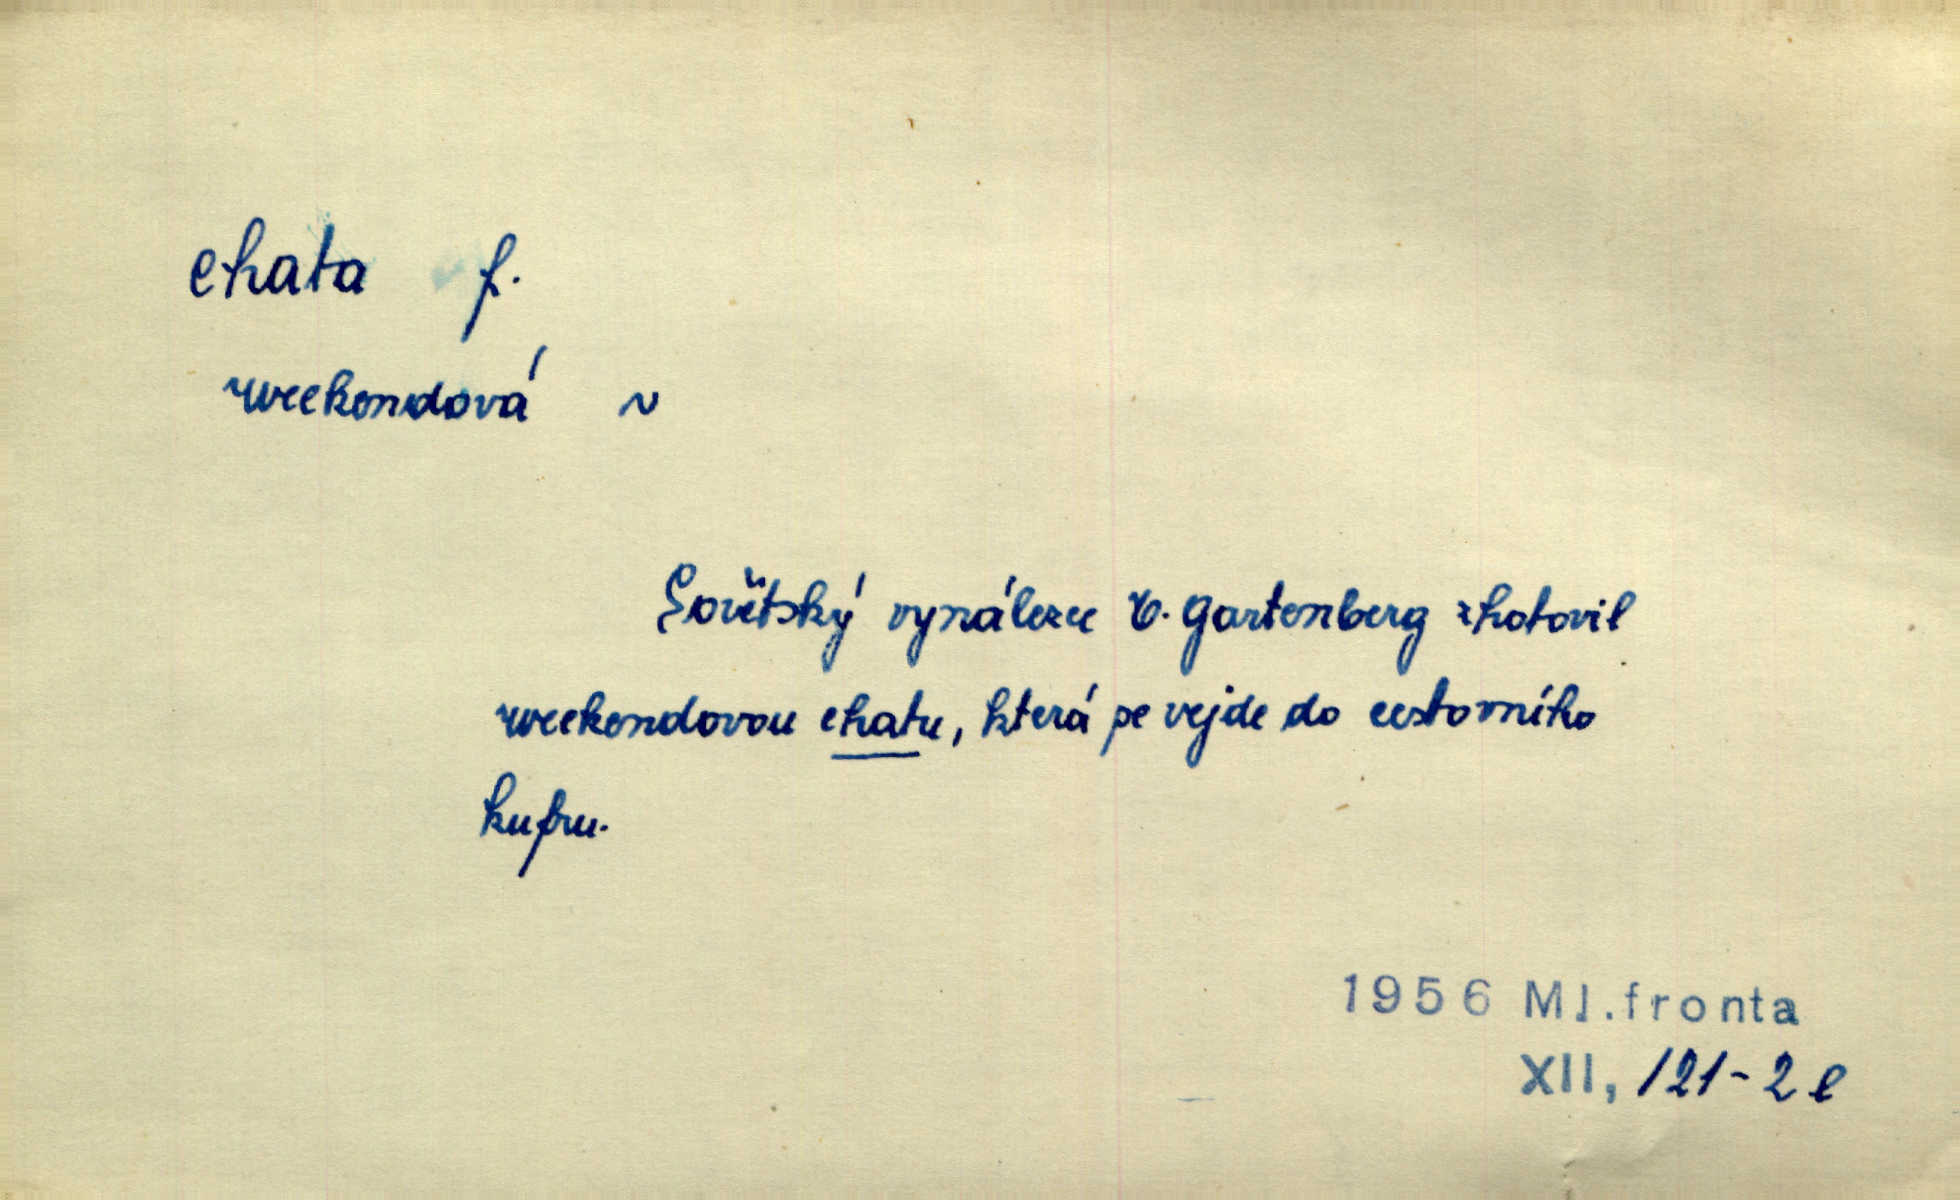 chata f.
weekendová ~
Sovětský vynálezce V. Gartenberg zhotovil
weekendovou chatu, která se vejde do cestovního
kufru.
1956 Ml.fronta
XII, 121-2 c